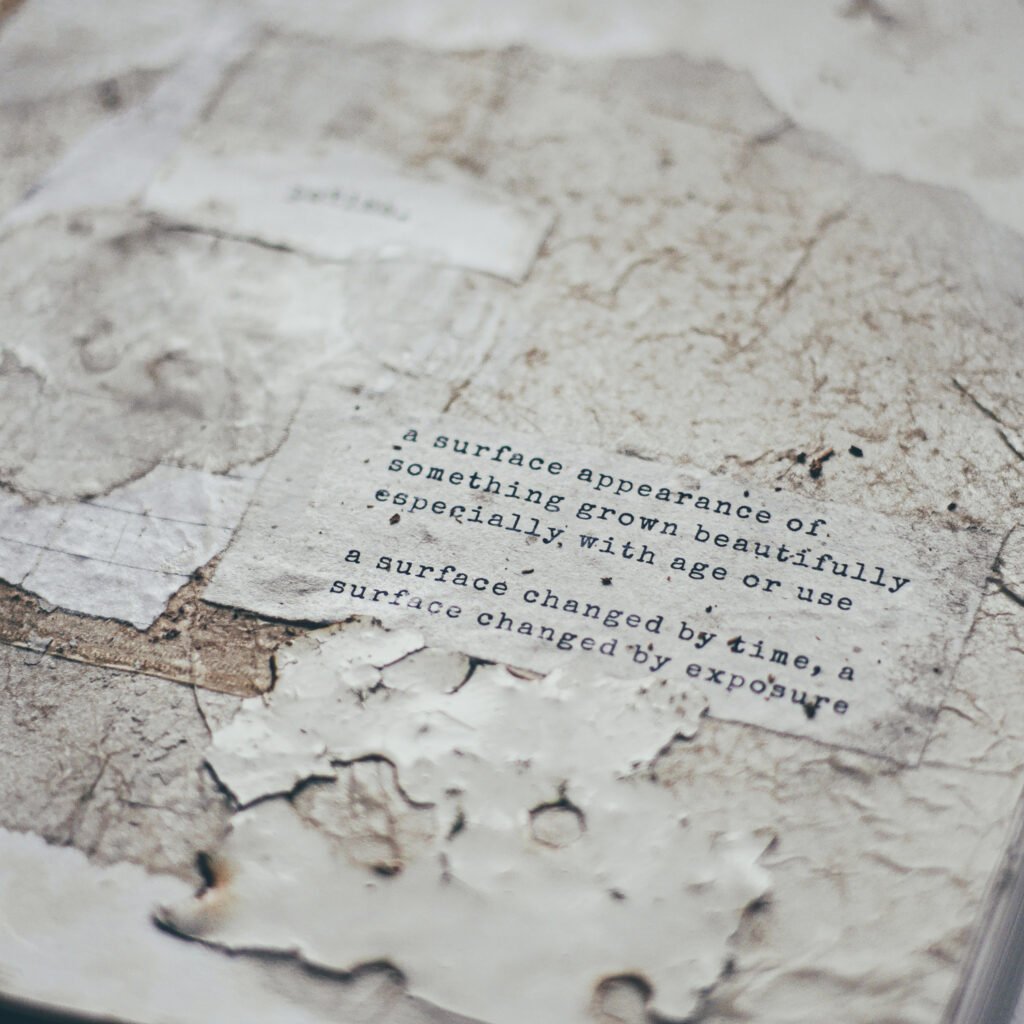 a surface appearance of
something grown beautifully
especially with age or use
a surface changed by time, a
surface changed by exposure